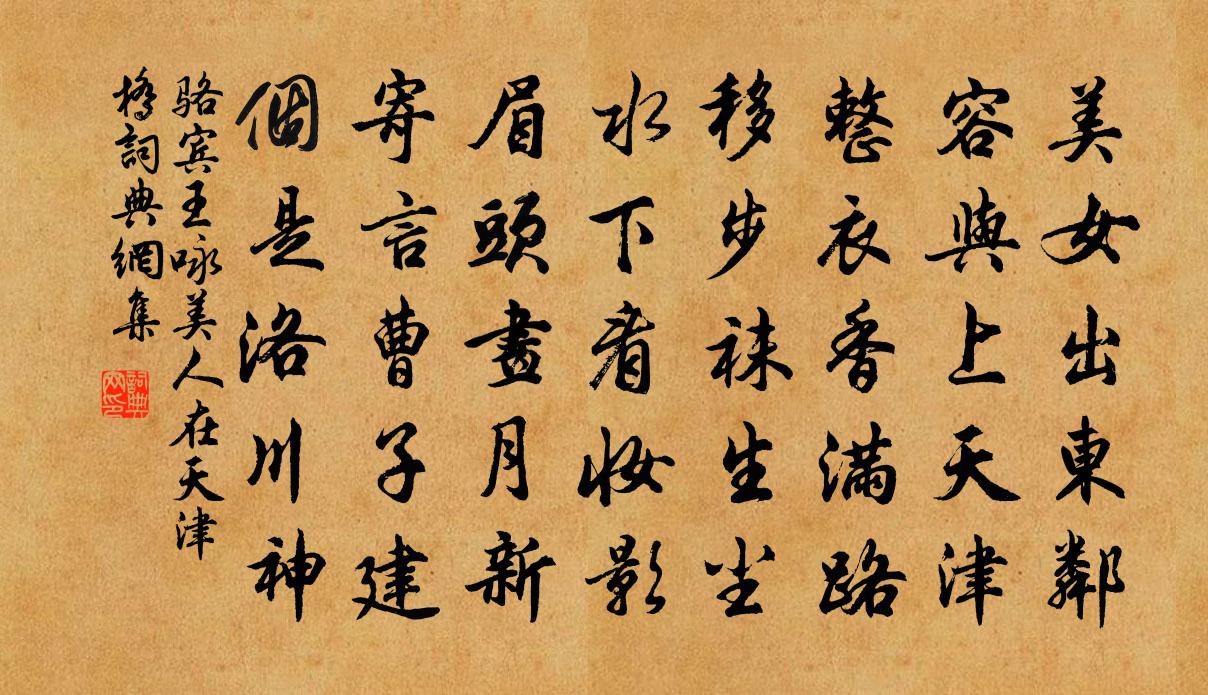 美女出東鄰
容與上天津
整衣香滿路
移步襪生尘
水下看妝影
眉頭畫月新
寄言曹子建
個是洛川神
骆宾王咏美人在天津
橋詞典網集
詞典
网印